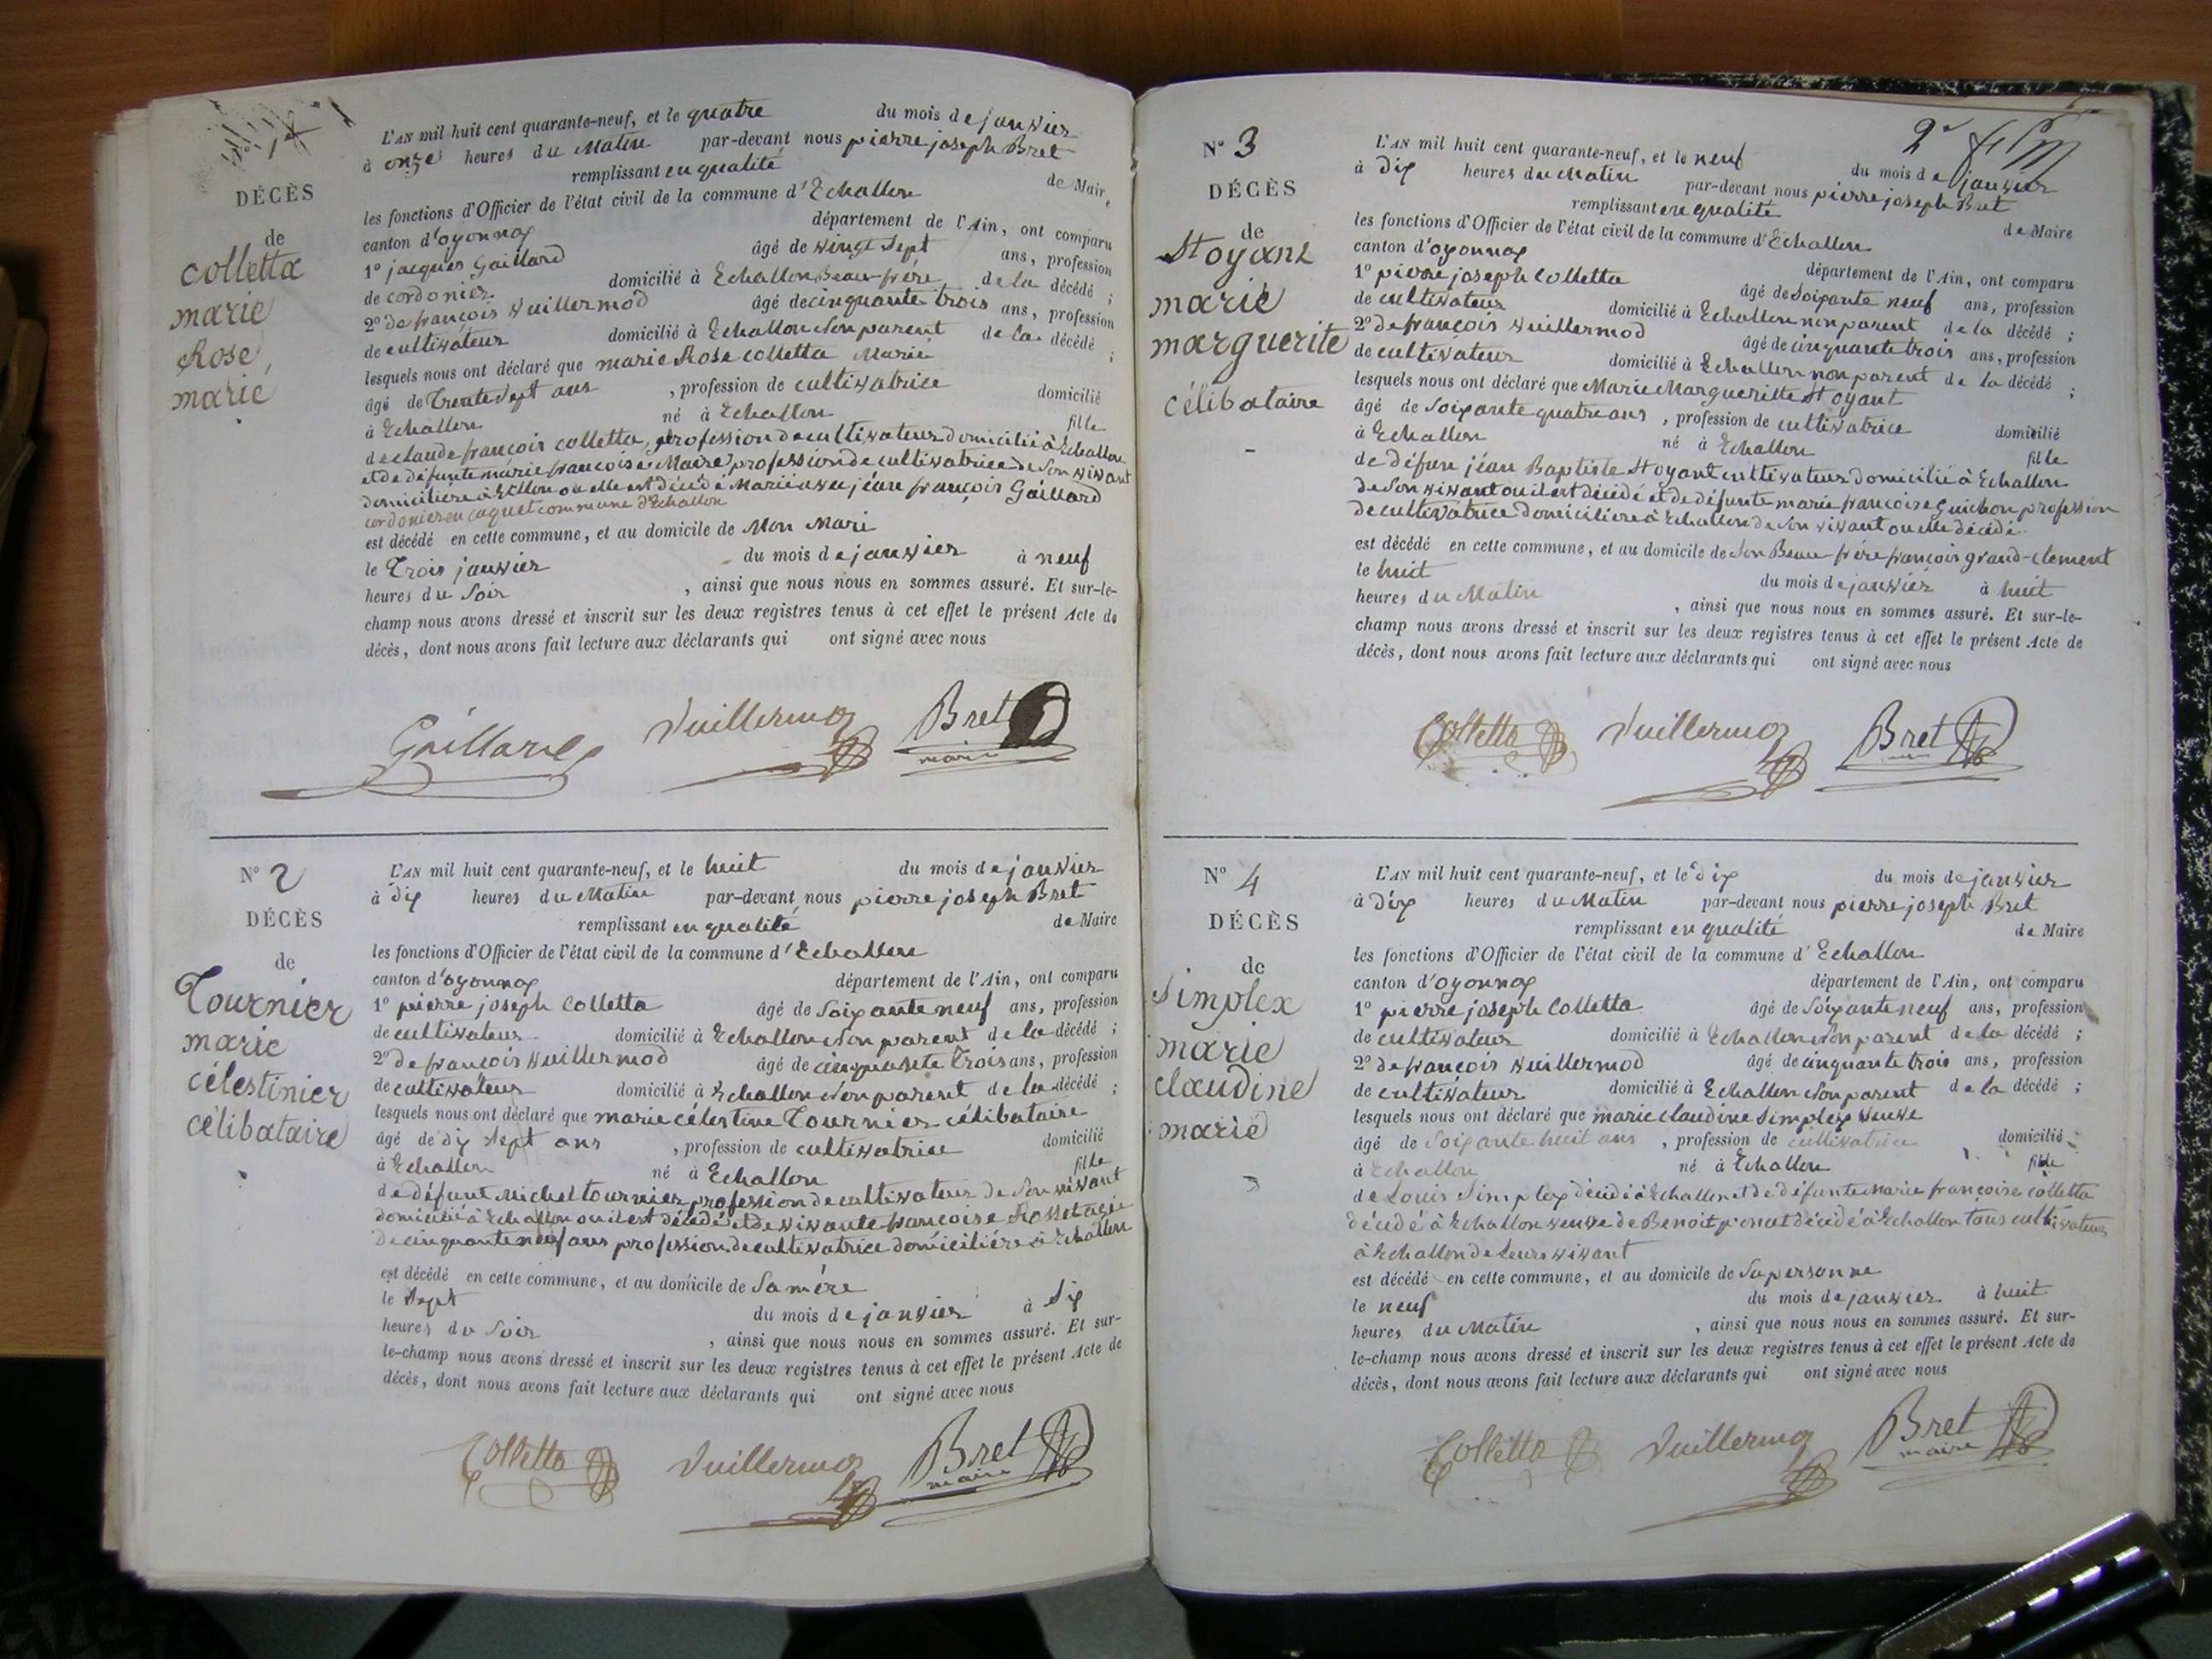 1
DÉCÈS
de
colletta
marie
Rose
marié
L'AN mil huit cent quarante-neuf, et le quatre du mois de janvier
à onze heures du Matin par-devant nous pierre joseph Bret
remplissant en qualité de Mair
les fonctions d'Officier de l'état civil de la commune d'Echallon
canton d'oyonnax département de l'Ain, ont comparu
1º jacques Gaillard âgé de vingt sept ans, profession
de cordonier domicilié à Echallon Beau-frére de la décédé ;
2º de françois Vuillermod âgé de cinquante trois ans, profession
de cultivateur domicilié à Echallon Non parent de la décédé ;
lesquels nous ont déclaré que marie Rose colletta Marié
âgé de Trente Sept ans , profession de cultivatrice domicilié
à Echallon né à Echallon fille
de claude françois colletta, profession de cultivateur domicilié à Echallon
et de défunte marie françoise Maire profession de cultivatrice de son vivant
domiciliere à Echllon ou elle est décédé Marié avec jéan françois Gaillard
cordonier en caquet commune d'Echallon
est décédé en cette commune, et au domicile de Mon Mari
le Trois janvier du mois de janvier à neuf
heures du Soir , ainsi que nous nous en sommes assuré. Et sur-le-
champ nous avons dressé et inscrit sur les deux registres tenus à cet effet le présent Acte de
décès, dont nous avons fait lecture aux déclarants qui ont signé avec nous
Gaillard Vuillermoz Bret
maire
Nº 2
DÉCÈS
de
Tournier
marie
célestinier
célibataire
L'AN mil huit cent quarante-neuf, et le huit du mois de janvier
à dix heures du Matin par-devant nous pierre joseph Bret
remplissant en qualité de Maire
les fonctions d'Officier de l'état civil de la commune d'Echallon
canton d'oyonnax département de l'Ain, ont comparu
1º pierre joseph Colletta âgé de Soixante neuf ans, profession
de cultivateur domicilié à Echallon Non parent de la décédé ;
2º de françois Vuillermod âgé de cinquante trois ans, profession
de cultivateur domicilié à Echallon Non parent de la décédé ;
lesquels nous ont déclaré que marie célestine Tournier célibataire
âgé de dix Sept ans , profession de cultivatrice domicilié
à Echallon né à Echallon fille
de défunt Michel tournier profession de cultivateur de son vivant
domicilié à Echallon ou il est décédé et de vivante françoise Rosset agée
de cinquante neuf ans profession de cultivatrice domiciliére à Echallon
est décédé en cette commune, et au domicile de Sa mére
le Sept du mois de janvier à Six
heures du Soir , ainsi que nous nous en sommes assuré. Et sur-
le-champ nous avons dressé et inscrit sur les deux registres tenus à cet effet le présent Acte de
décès, dont nous avons fait lecture aux déclarants qui ont signé avec nous
Colletta Vuillermoz Bret
maire
2e
Nº 3
DÉCÈS
de
Stoyant
marie
marguerite
célibataire
L'AN mil huit cent quarante-neuf, et le neuf du mois de janvier
à Dix heures du Matin par-devant nous pierre joseph Bret
remplissant en qualité de Maire
les fonctions d'Officier de l'état civil de la commune d'Echallon
canton d'oyonnax département de l'Ain, ont comparu
1º pierre joseph Colletta âgé de Soixante neuf ans, profession
de cultivateur domicilié à Echallon non parent de la décédé ;
2º de françois Vuillermod âgé de cinquante trois ans, profession
de cultivateur domicilié à Echallon non parent de la décédé ;
lesquels nous ont déclaré que Marie Margueritte Stoyant
âgé de Soixante quatre ans , profession de cultivatrice domicilié
à Echallon né à Echallon fille
de défunt jéan Baptiste Stoyant cultivateur domicilié à Echallon
de Son vivant ou il est décédé et de défunte marie françoise Guichon profession
de cultivatrice domiciliere à Echallon de Son vivant ou elle décédé
est décédé en cette commune, et au domicile de Son Beau-frére françois grand-clement
le huit du mois de janvier à huit
heures du Matin , ainsi que nous nous en sommes assuré. Et sur-le-
champ nous avons dressé et inscrit sur les deux registres tenus à cet effet le présent Acte de
décès, dont nous avons fait lecture aux déclarants qui ont signé avec nous
Colletta Vuillermoz Bret
Nº 4
DÉCÈS
de
Simplex
marie
claudine
marié
L'AN mil huit cent quarante-neuf, et le dix du mois de janvier
à Dix heures du Matin par-devant nous pierre joseph Bret
remplissant en qualité de Maire
les fonctions d'Officier de l'état civil de la commune d'Echallon
canton d'oyonnax département de l'Ain, ont comparu
1º pierre joseph Colletta âgé de Soixante neuf ans, profession
de cultivateur domicilié à Echallon Non parent de la décédé ;
2º de françois Vuillermod âgé de cinquante trois ans, profession
de cultivateur domicilié à Echallon Non parent de la décédé ;
lesquels nous ont déclaré que marie claudine Simplex veuve
âgé de Soixante huit ans , profession de cultivatrice domicilié
à Echallon né à Echallon fille
de Louis Simplex décédé à Echallon et de défunte Marie françoise colletta
décédé à Echallon veuve de Benoit poncet décédé à Echallon tous cultivateur
à Echallon de leurs vivant
est décédé en cette commune, et au domicile de Sa personne
le neuf du mois de janvier à huit
heures du Matin , ainsi que nous nous en sommes assuré. Et sur-
le-champ nous avons dressé et inscrit sur les deux registres tenus à cet effet le présent Acte de
décès, dont nous avons fait lecture aux déclarants qui ont signé avec nous
Colletta Vuillermoz Bret
maire